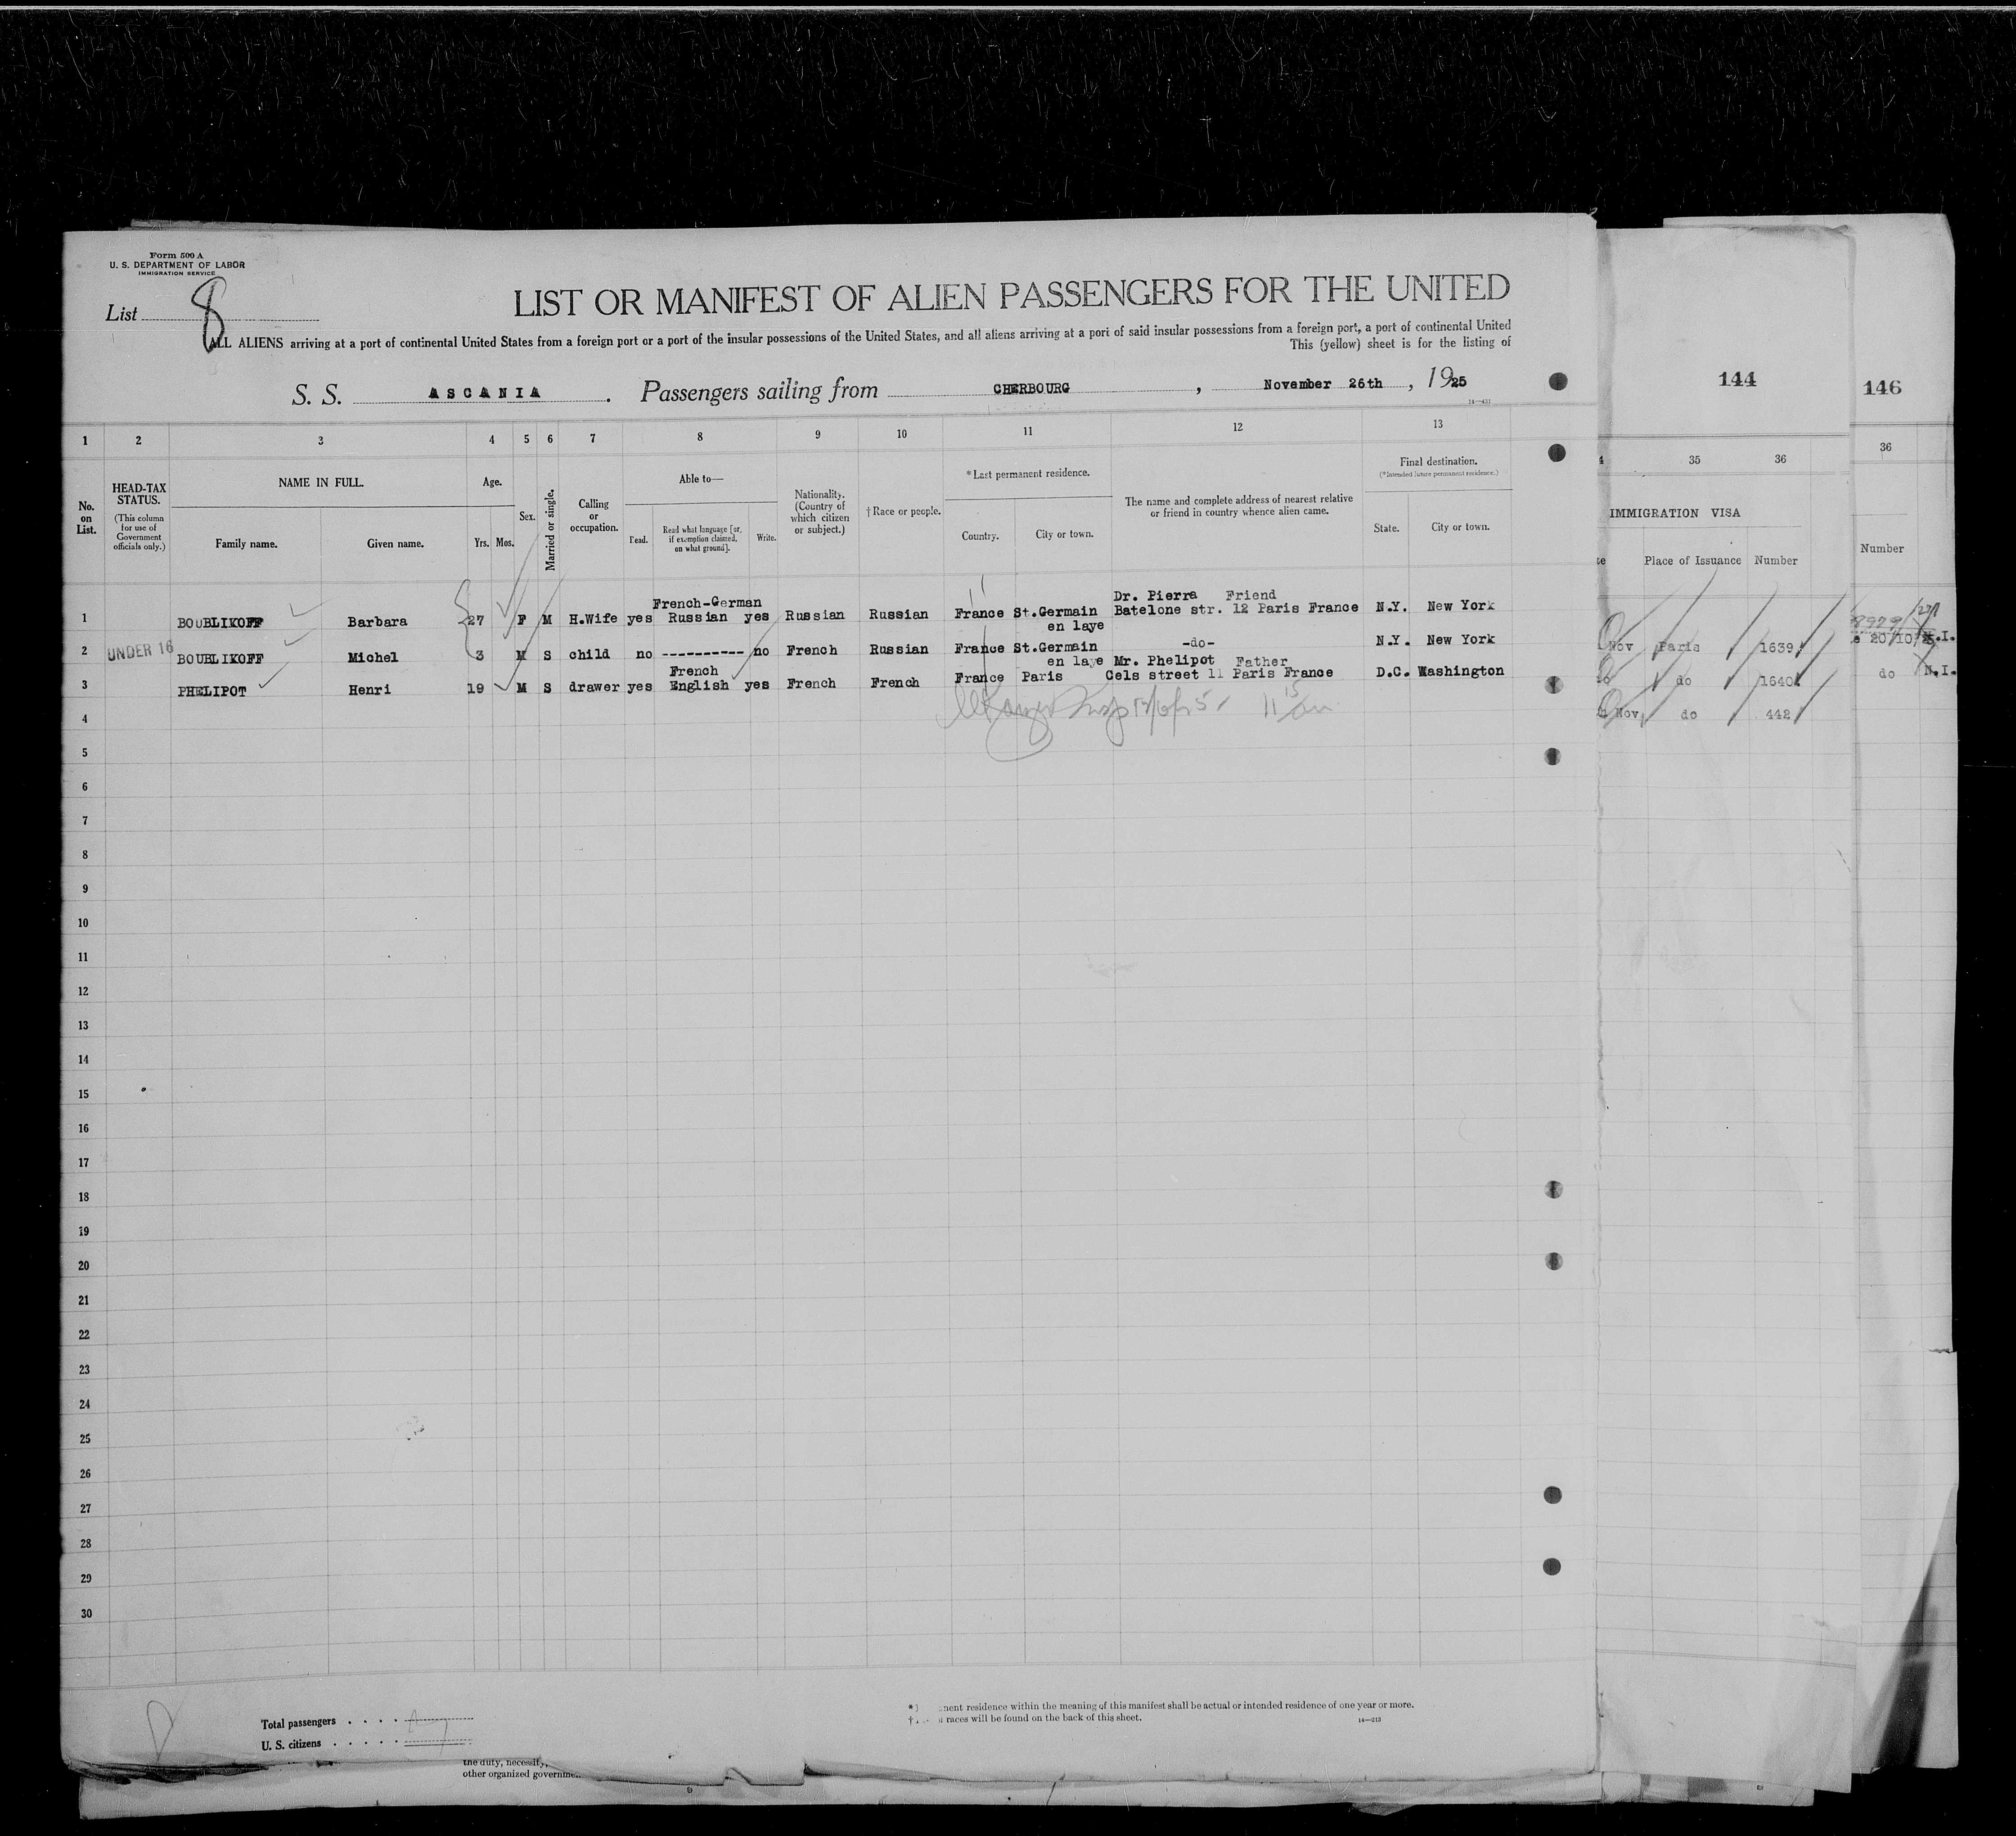 Form 500 A
U. S. DEPARTMENT OF LABOR
IMMIGRATION SERVICE
List 8
LIST OR MANIFEST OF ALIEN PASSENGERS FOR THE UNITED
ALL ALIENS arriving at a port of continental United States from a foreign port or a port of the insular possessions of the United States, and all aliens arriving at a port of said insular possessions from a foreign port, a port of continental United
This (yellow) sheet is for the listing of
S. S. ASCANIA . Passengers sailing from CHERBOURG , November 26th , 1925
14-431
144
146
1 2 3 4 5 6 7 8 9 10 11 12 13
35 36
36
No. on List.
HEAD-TAX STATUS.
(This column for use of Government officials only.)
NAME IN FULL.
Family name. Given name.
Age.
Yrs. Mos.
Sex.
Married or single.
Calling or occupation.
Able to—
Read. Read what language [or, if exemption claimed, on what ground]. Write.
Nationality. (Country of which citizen or subject.)
†Race or people.
*Last permanent residence.
Country. City or town.
The name and complete address of nearest relative or friend in country whence alien came.
Final destination.
(*Intended future permanent residence.)
State. City or town.
IMMIGRATION VISA
Place of Issuance Number
Number
French-German Dr. Pierra Friend
1 BOUBLIKOFF Barbara 27 F M H.Wife yes Russian yes Russian Russian France St.Germain Batelone str. 12 Paris France N.Y. New York
en laye
UNDER 16
2 BOUBLIKOFF Michel 3 M S child no ---------- no French Russian France St.Germain -do- N.Y. New York
French en laye Mr. Phelipot Father
3 PHELIPOT Henri 19 M S drawer yes English yes French French France Paris Cels street 11 Paris France D.C. Washington
Nov Paris 1639
do 1640
Nov do 442
20/10/
N.I.
do N.I.
4
5
6
7
8
9
10
11
12
13
14
15
16
17
18
19
20
21
22
23
24
25
26
27
28
29
30
Total passengers . . . .
U. S. citizens . . . . .
nent residence within the meaning of this manifest shall be actual or intended residence of one year or more.
races will be found on the back of this sheet.
14-213
the duty, necessity,
other organized governme